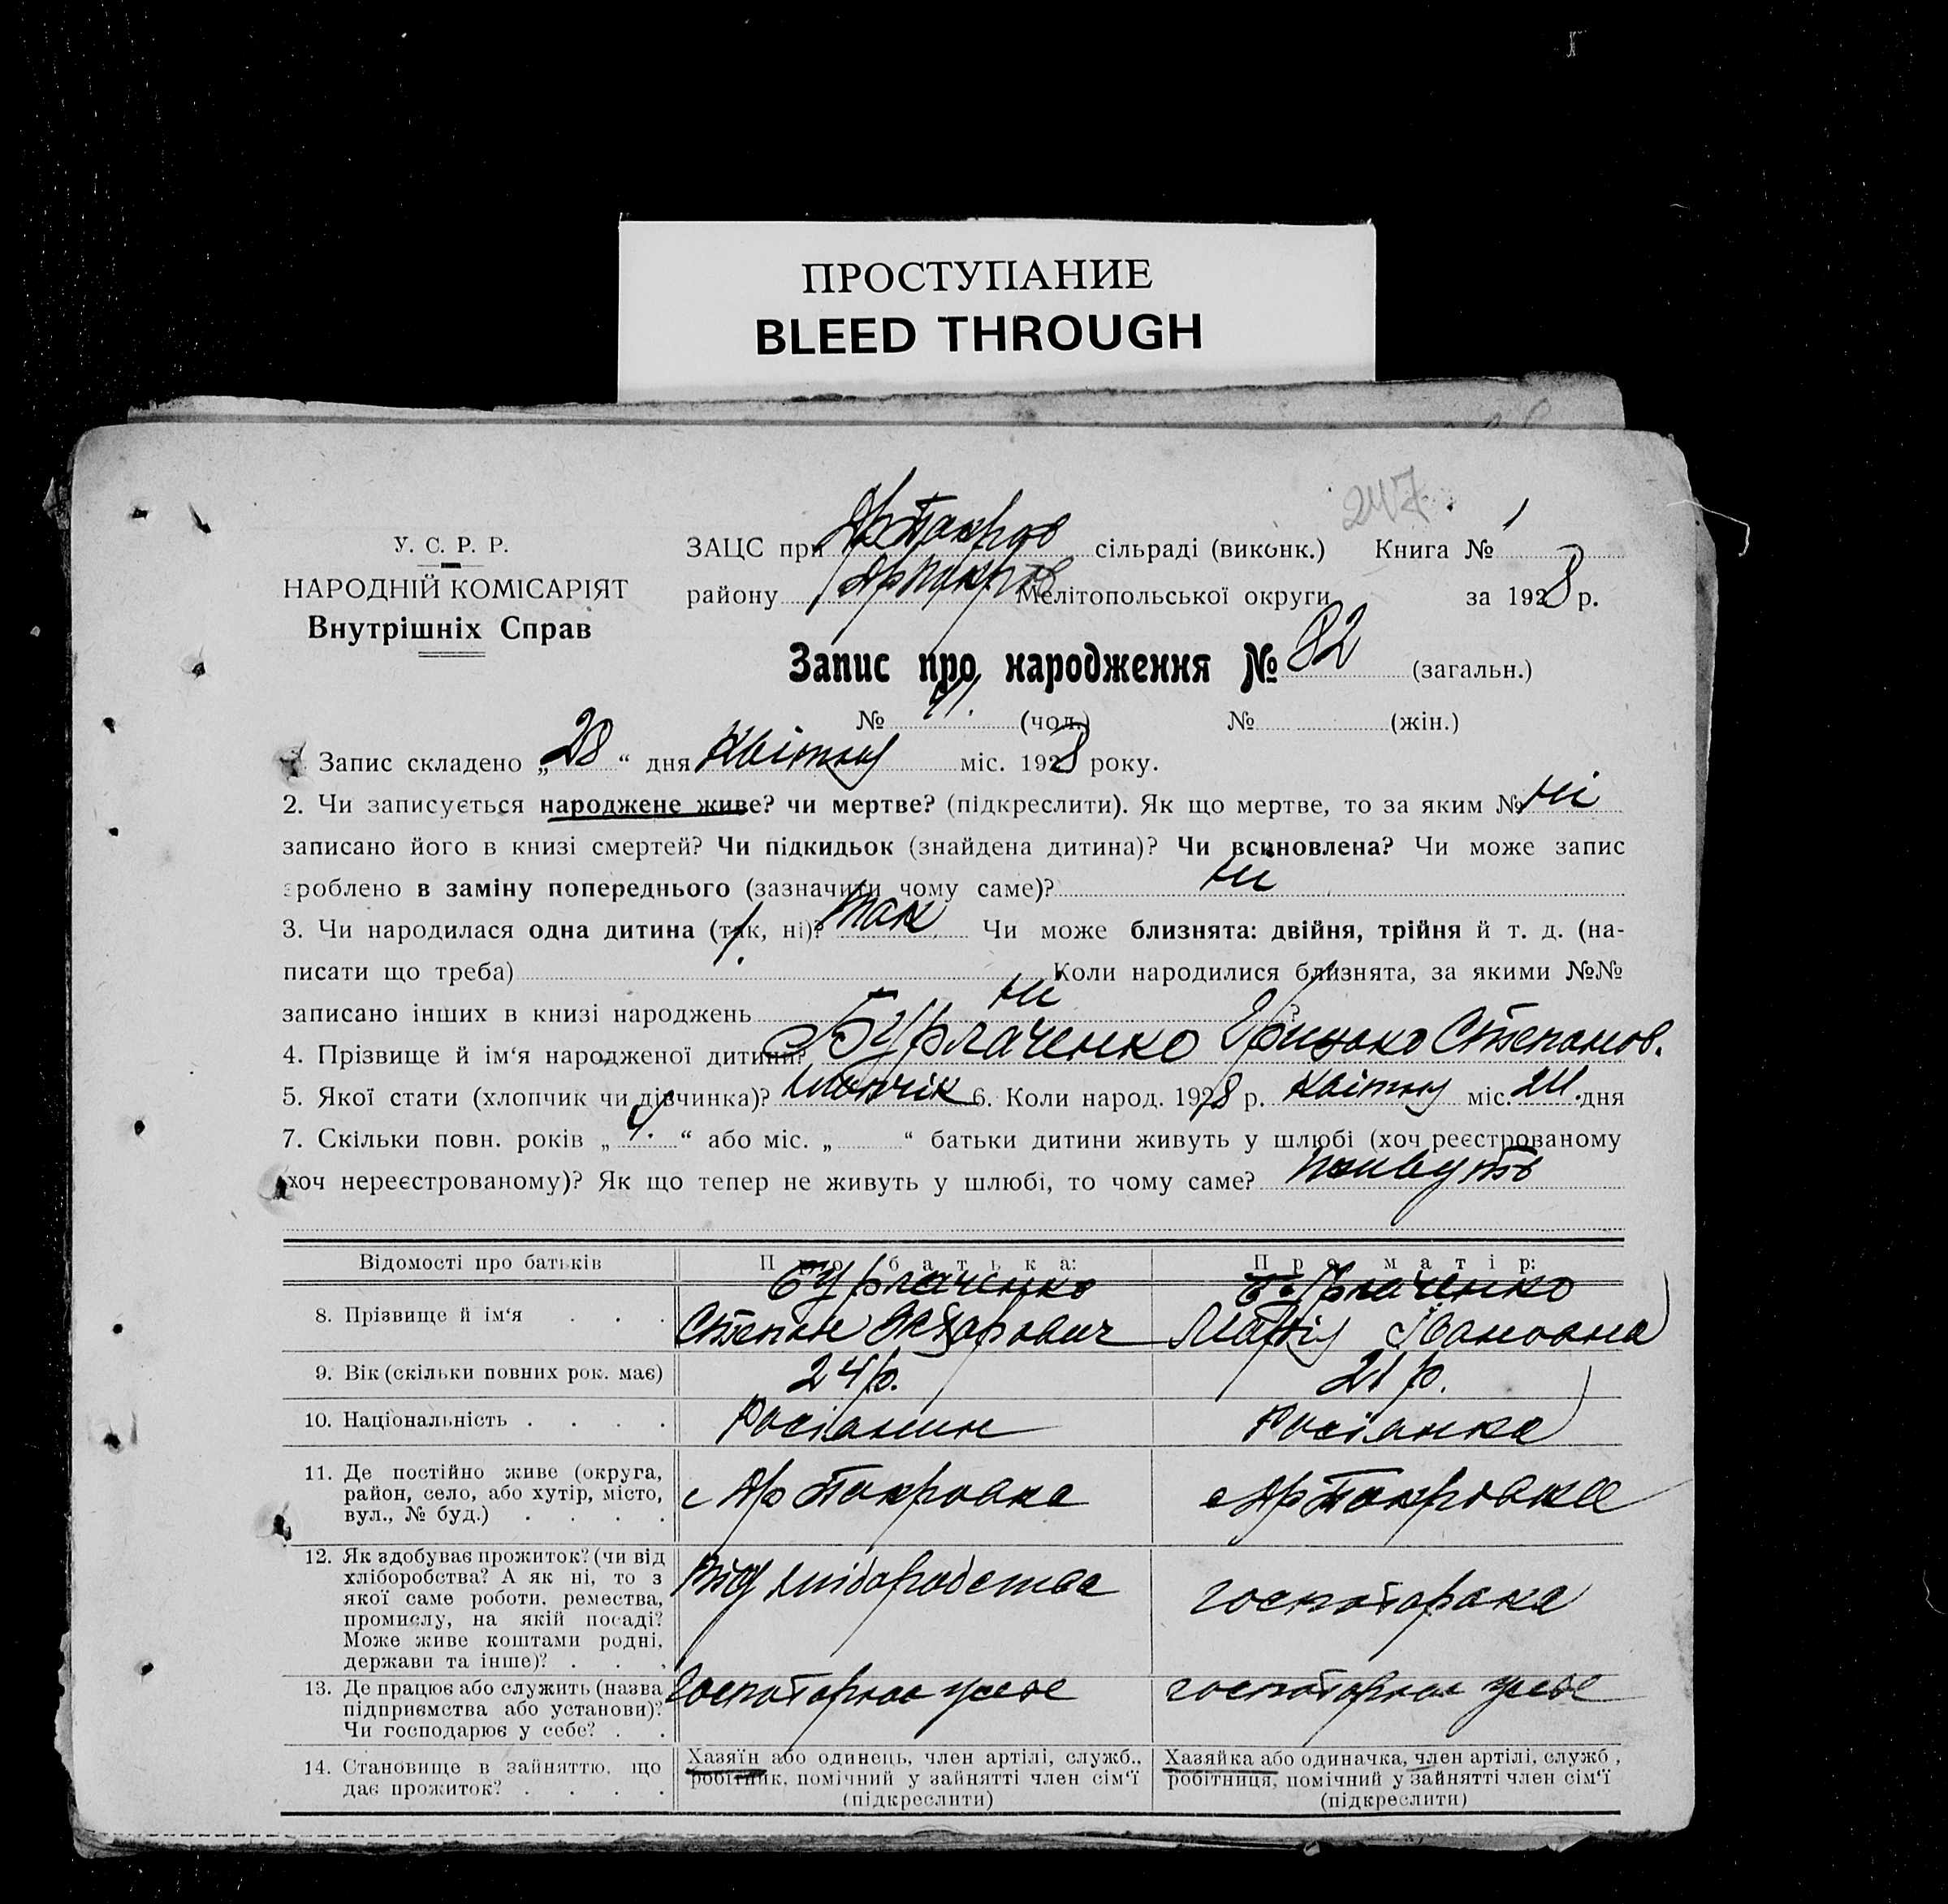 ПРОСТУПАНИЕ
BLEED THROUGH
247
У. С. Р. Р.
НАРОДНІЙ КОМІСАРІЯТ
Внутрішніх Справ
ЗАЦС при сільраді (виконк.) Книга № 1
району Мелітопольської округи за 1928 р.
Запис про народження № 82 (загальн.)
№ 41. (чол.) № (жін.)
Запис складено „28“ дня Квітня міс. 1928 року.
2. Чи записується народжене живе? чи мертве? (підкреслити). Як що мертве, то за яким № ні
записано його в книзі смертей? Чи підкидьок (знайдена дитина)? Чи всиновлена? Чи може запис
зроблено в заміну попереднього (зазначити чому саме)? ні
3. Чи народилася одна дитина (так, ні)? так Чи може близнята: двійня, трійня й т. д. (на-
писати що треба) Коли народилися близнята, за якими №№
записано інших в книзі народжень ні ?
4. Прізвище й ім‘я народженої дитини? Бурлаченко Грицько Степанов.
5. Якої стати (хлопчик чи дівчинка)? хлопчік 6. Коли народ. 1928 р. квітня міс. 24. дня
7. Скільки повн. років „4.“ або міс. „ “ батьки дитини живуть у шлюбі (хоч реєстрованому
хоч нереєстрованому)? Як що тепер не живуть у шлюбі, то чому саме? живуть
Відомості про батьків Про батька: Про матір:
8. Прізвище й ім‘я Бурлаченко Степан Бурлаченко Марія Івановна
9. Вік (скільки повних рок. має) 24 р. 21 р.
10. Національність Росіанин Росіанка
11. Де постійно живе (округа,
район, село, або хутір, місто,
вул., № буд.) с Ар Покровка с Ар Покровка
12. Як здобуває прожиток? (чи від
хліборобства? А як ні, то з
якої саме роботи, ремества,
промислу, на якій посаді?
Може живе коштами родні,
держави та інше)? Від хліборобства
13. Де працює або служить (назва
підприємства або установи)?
Чи господарює у себе?
14. Становище в зайняттю, що
дає прожиток?
Хазяїн або одинець, член артілі, служб.,
робітник, помічний у зайнятті член сім‘ї
(підкреслити)
Хазяйка або одиначка, член артілі, служб,
робітниця, помічний у зайнятті член сім‘ї
(підкреслити)